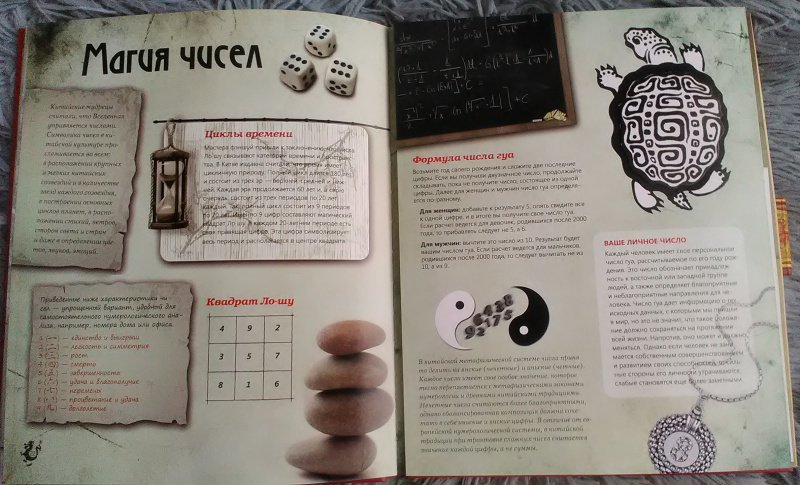 Магия чисел
Китайские мудрецы
считали, что Вселенная
управляется числами.
Символика чисел в ки-
тайской культуре про-
слеживается во всем:
в расположении крупных
и мелких китайских
созвездий и в количестве
звезд каждого созвездия,
в построении основных
циклов планет, в распо-
ложении стихий, ветров,
сторон света и стран
и даже в определении цве-
тов, звуков, эмоций.
Циклы времени
Мастера фэншуй пришли к заключению, что числа
Ло-шу связывают категории времени и пространс-
тва. В Китае издавна считали, что время имеет
цикличную природу. Полный цикл длится 180 лет
и состоит из трех эр — верхней, средней и ниж-
ней. Каждая эра продолжается 60 лет и, в свою
очередь, состоит из трех периодов по 20 лет
каждый. Так, полный цикл состоит из 9 периодов
по 20 лет. Именно 9 цифр составляют магический
квадрат Ло-шу. В каждом 20-летнем периоде есть
своя правящая цифра. Эта цифра символизирует
весь период и располагается в центре квадрата.
Приведенные ниже характеристики чи-
сел — упрощенный вариант, удобный для
самостоятельного нумерологического ана-
лиза, например, номера дома или офиса.
1 — единство и выигрыш
2 — легкость и симметрия
3 — рост
4 — смерть
5 — завершенность
6 — удача и благополучие
7 — перемены
8 — процветание и удача
9 — долголетие
Квадрат Ло-шу
4 9 2
3 5 7
8 1 6
Формула числа гуа
Возьмите год своего рождения и сложите две последние
цифры. Если вы получили двузначное число, продолжайте
складывать, пока не получите число, состоящее из одной
цифры. Далее для женщин и мужчин число гуа определя-
ется по-разному.
Для женщин: добавьте к результату 5, опять сведите все
к одной цифре, и в итоге вы получите свое число гуа.
Если расчет ведется для девочки, родившихся после 2000
года, то прибавлять следует не 5, а 6.
Для мужчин: вычтите это число из 10. Результат будет
вашим числом гуа. Если расчет ведется для мальчиков,
родившихся после 2000 года, то следует вычитать не из
10, а из 9.
В китайской метафизической системе числа приня-
то делить на янские (нечетные) и иньские (четные).
Каждое число имеет свое особое значение, которое
тесно переплетается с метафизическими законами
нумерологии и древними китайскими традициями.
Нечетные числа считаются более благоприятными,
однако сбалансированная композиция должна соче-
тать в себе иньские и янские цифры. В отличие от ев-
ропейской нумерологической системы, в китайской
традиции при трактовке сложных чисел считается
значение каждой цифры, а не суммы.
ВАШЕ ЛИЧНОЕ ЧИСЛО
Каждый человек имеет свое персональное
число гуа, рассчитываемое по его году рож-
дения. Это число обозначает принадлеж-
ность к восточной или западной группе
людей, а также определяет благоприятные
и неблагоприятные направления для че-
ловека. Число гуа дает информацию о тех
исходных данных, с которыми мы пришли
в мир, но это не значит, что такое положе-
ние должно сохраняться на протяжении
всей жизни. Напротив, оно может и должно
меняться. Однако если человек не зани-
мается собственным совершенствованием
и развитием своих способностей, то силь-
ные стороны его личности утрачиваются,
слабые становятся еще более заметными.